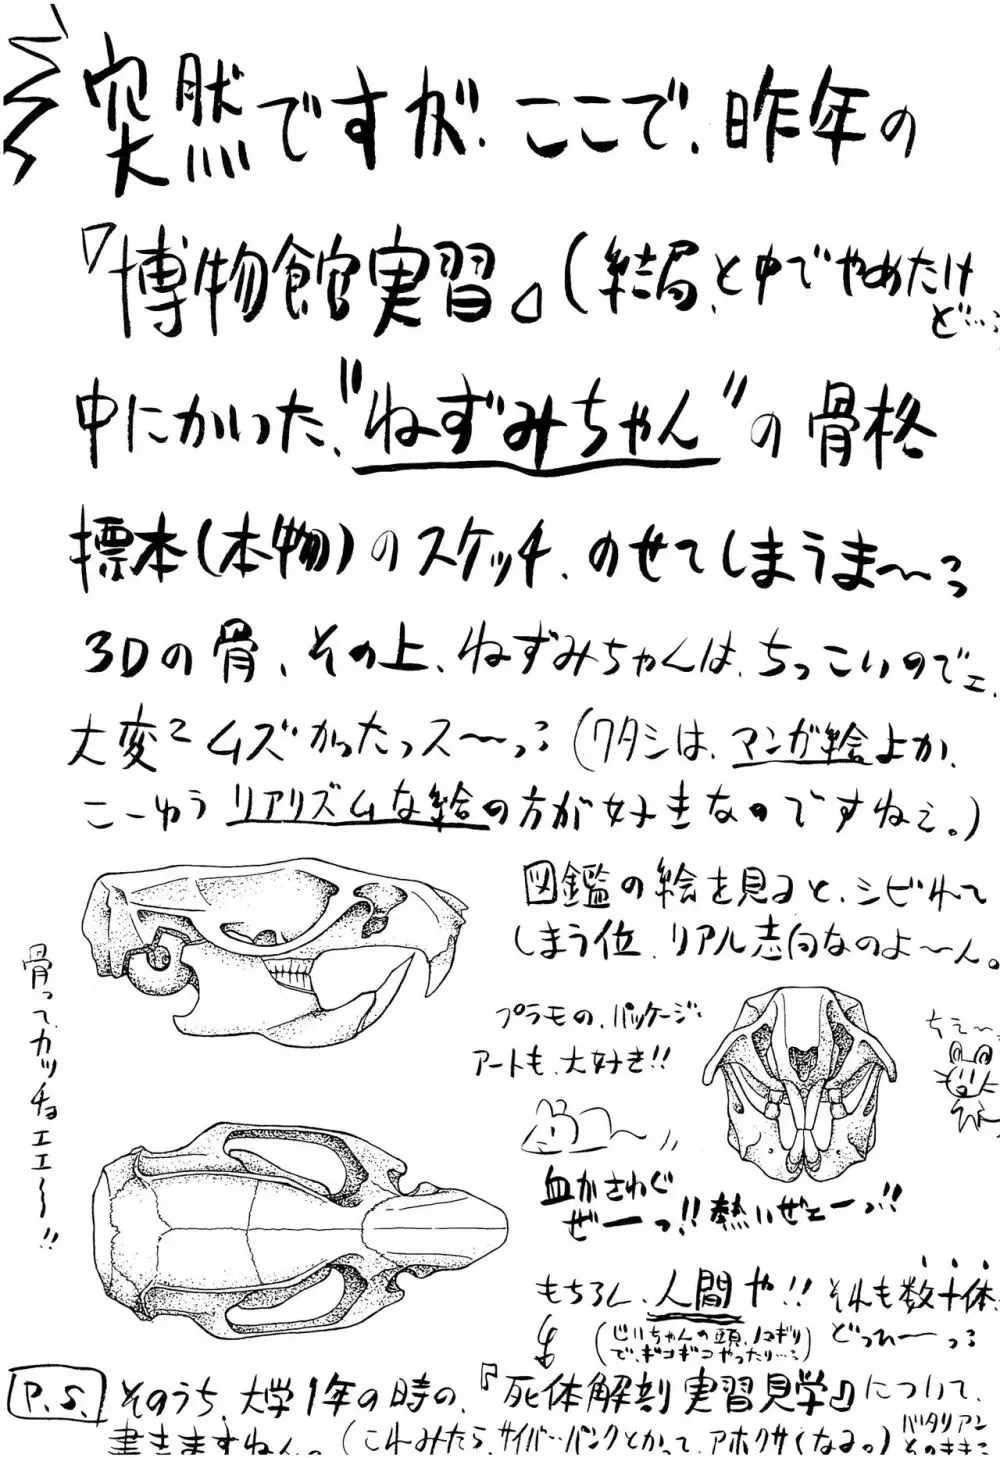 突然ですが、ここで、昨年の
『博物館実習』(結局、と中でやめたけど…)
中にかいた、"ねずみちゃん"の骨格
標本(本物)のスケッチ、のせてしまうま〜っ
3Dの骨、その上、ねずみちゃんは、ちっこいのでェ、
大変ムズかったっス〜っ(ワタシは、マンガ絵よか、
こーゆうリアリズムな絵の方が好きなのですねェ。)
図鑑の絵を見ると、シビれて
しまう位、リアル志向なのよ〜ん。
骨って、カッチョエエ〜!!
プラモの、パッケージ
アートも、大好き!!
ちえ〜
血がさわぐ
ぜーっ!!熱いぜェーっ!!
もちろん、人間や!!それも数十体、
どっひーっ
(じいちゃんの頭、ノコギリ
で、ギコギコやったり…)
P.S. そのうち、大学1年の時の、『死体解剖実習見学』について、
書きますねん。(これみたら、サイバーパンクとかって、アホクサくなる。)バタリアン
そのまま